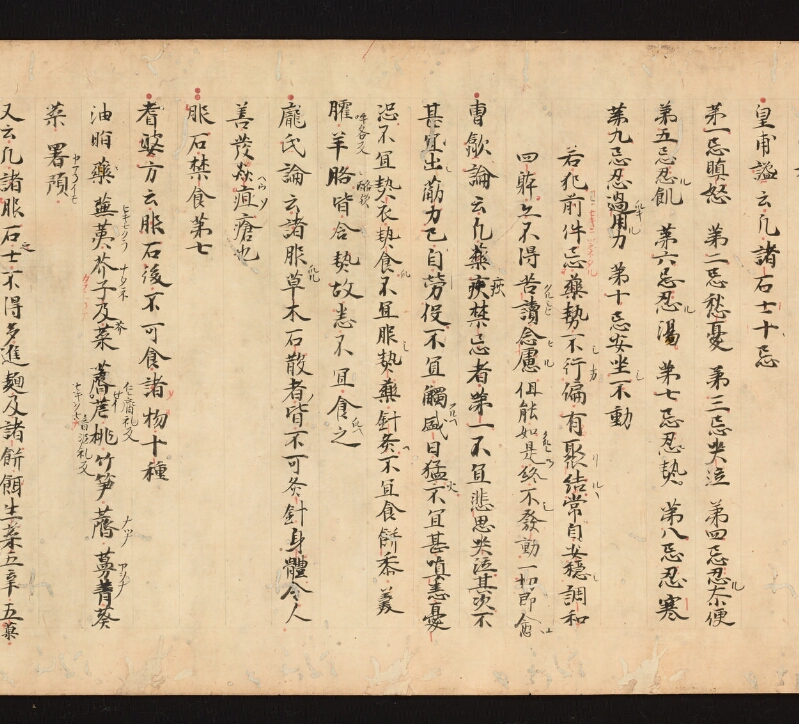 皇甫謐云凡諸石士十忌
第一忌瞋怒 第二忌愁憂 第三忌哭泣 第四忌忍大小便
第五忌忍飢 第六忌忍渇 第七忌忍熱 第八忌忍寒
第九忌忍過用力 第十忌安坐不動
若犯前件忌藥勢不行偏有聚結常自安穩調和
四體亦不得苦讀念慮但能如是終不發動一切即愈
曹歙論云凡藥疾禁忌者第一不宜悲思哭泣其次不
甚宜出筋力已自勞役不宜觸風日猛火不宜甚嗔恚憂
忌不宜熱衣熱食不宜服熱藥針灸不宜食餅黍羹
臛羊酪皆含熱故悉不宜食之
龐氏論云諸服草木石散者皆不可灸針身體令人
善發癰疽瘡也
服石禁食第七
耆婆方云服石後不可食諸物十種
油脂 藥 蕪荑 芥子及芥菜 蕎苣 桃 竹笋 薺 蔓菁 葵
菜 署預
又云凡諸服石之士不得多進麺及諸餅餌生菜五辛五菓